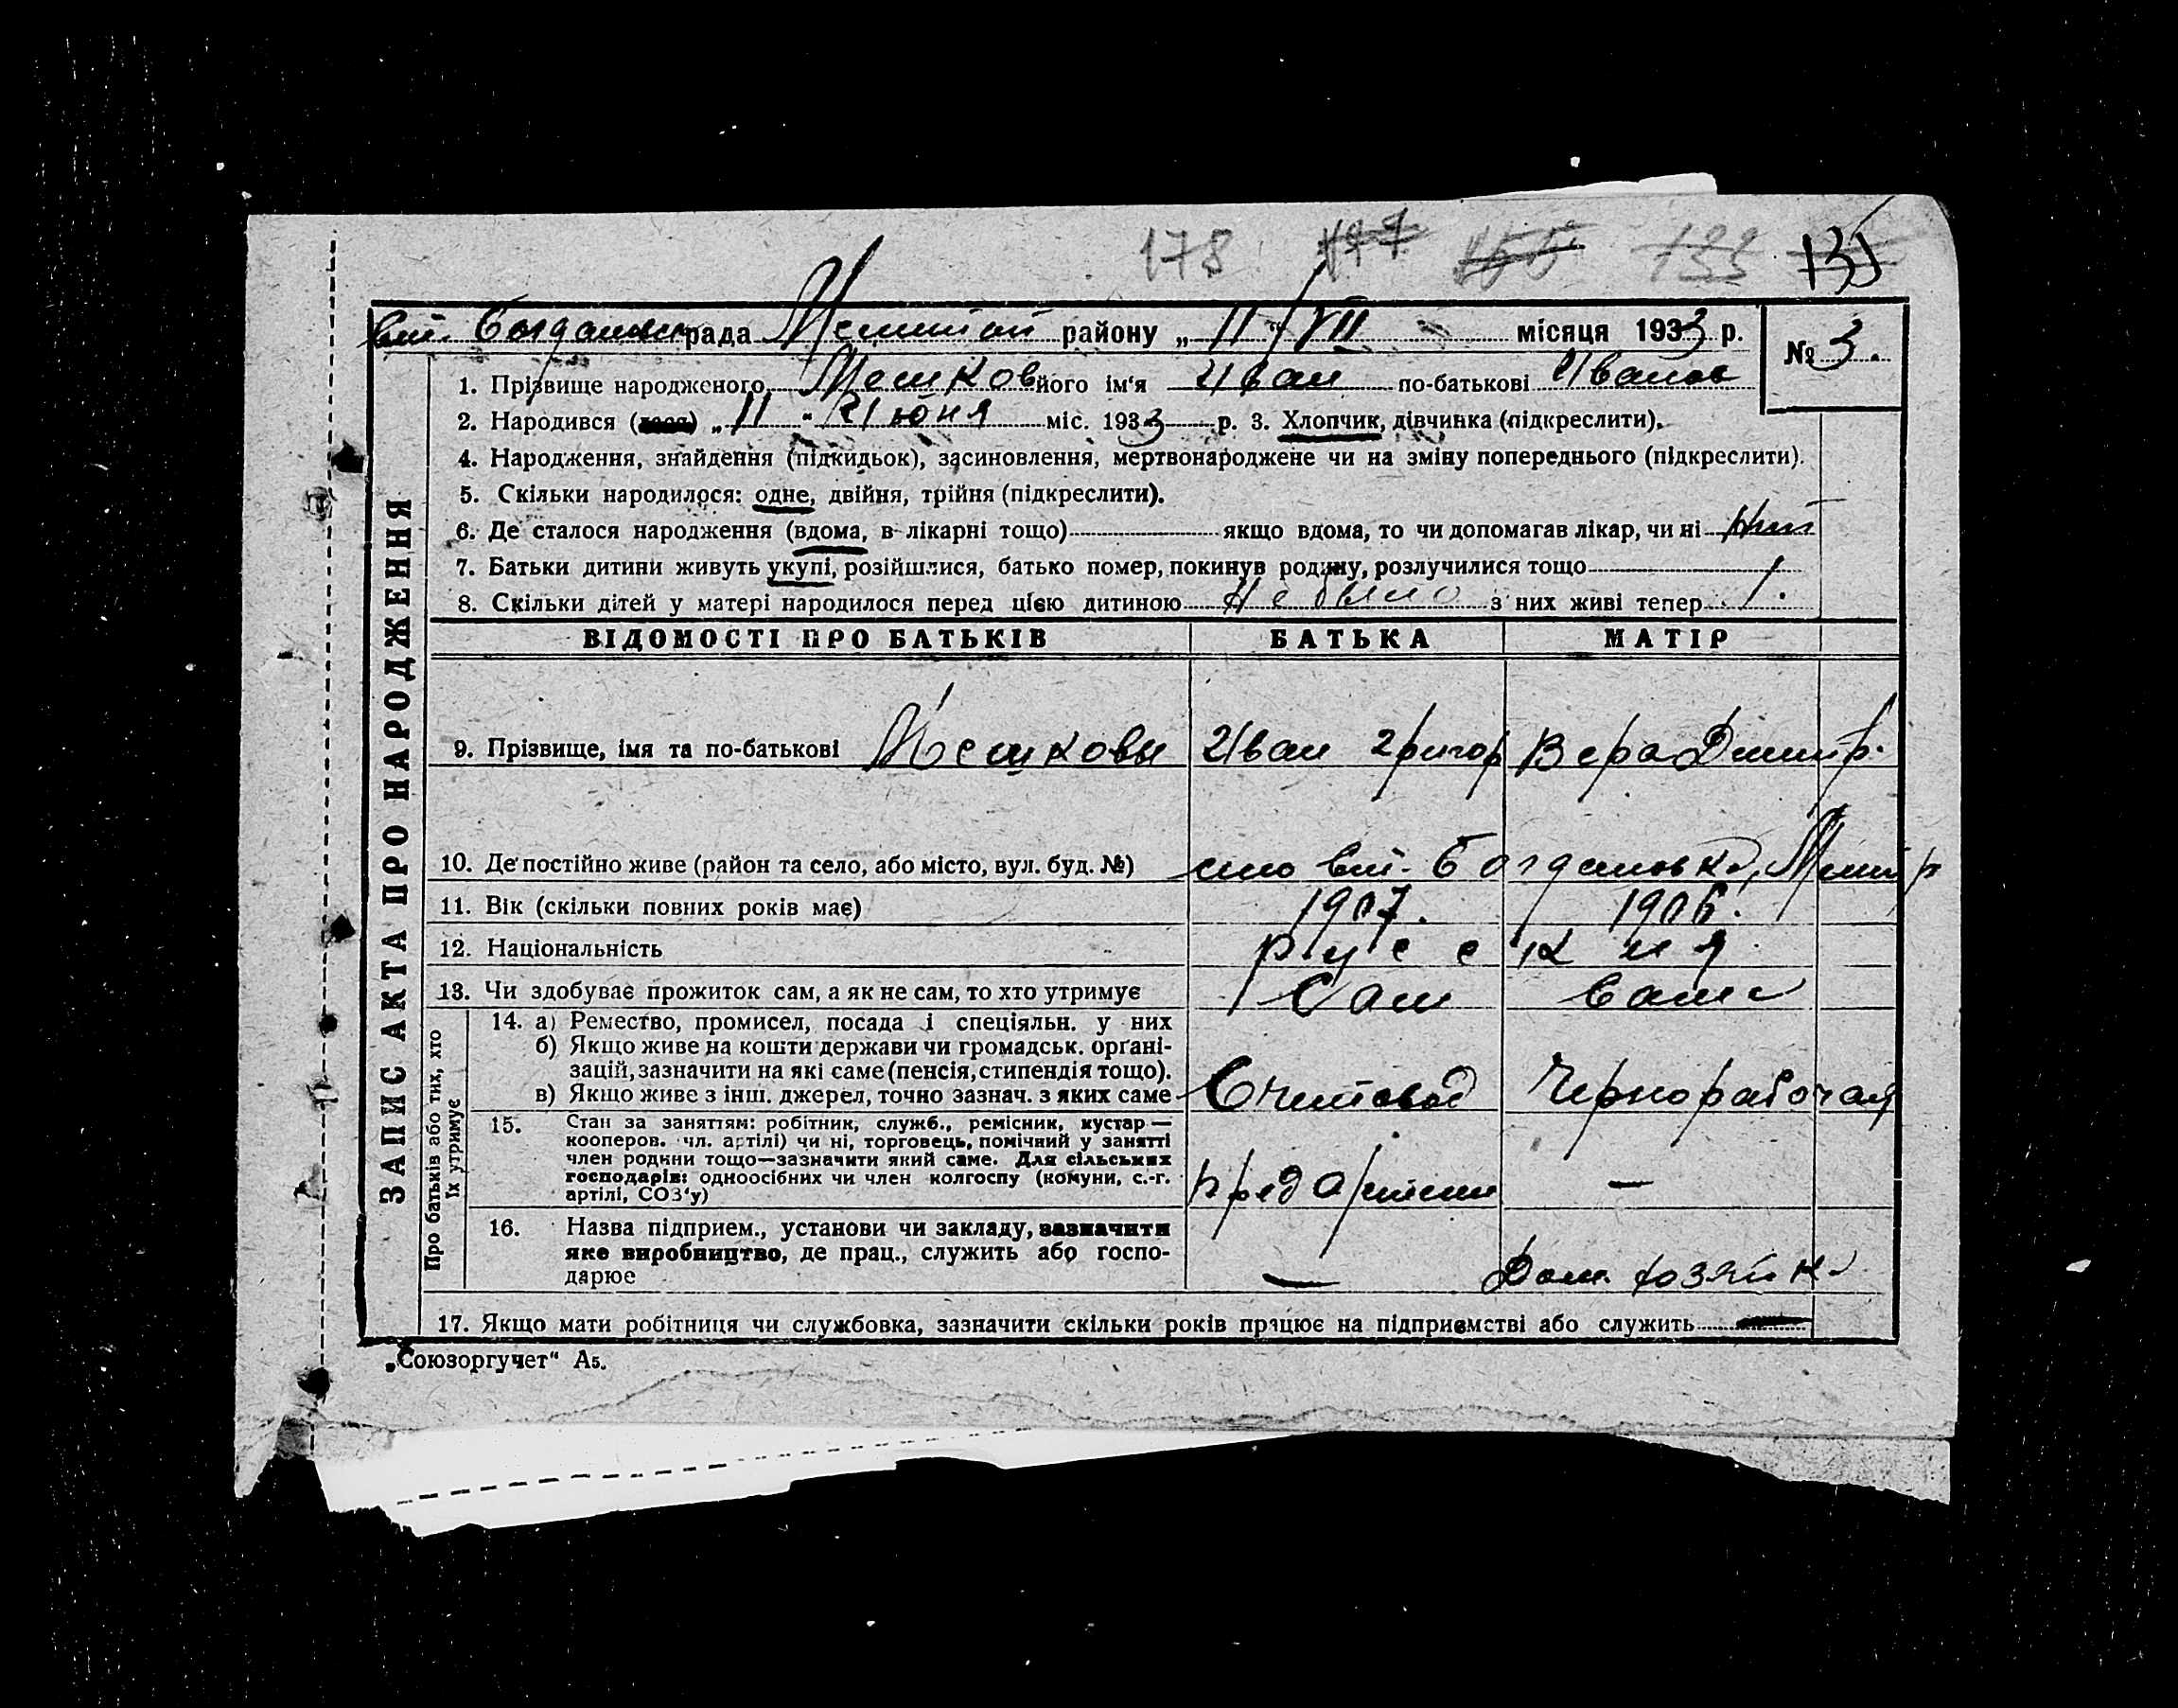 178 177 155 133 135
Богдановк рада района „ 11 “ VII місяця 1933 р. № 3.
1. Прізвище народженого Мешков його ім'я Иван по-батькові Иванов
2. Народився „ 11 “ Июня міс. 1933 р. 3. Хлопчик, дівчинка (підкреслити).
4. Народження, знайдення (підкидьок), засиновлення, мертвонароджене чи на зміну попереднього (підкреслити).
5. Скільки народилося: одне, двійня, трійня (підкреслити).
6. Де сталося народження (вдома, в лікарні тощо) якщо вдома, то чи допомагав лікар, чи ні
7. Батьки дитини живуть укупі, розійшлися, батько помер, покинув родину, розлучилися тощо
8. Скільки дітей у матері народилося перед цією дитиною не было з них живі тепер 1.
ЗАПИС АКТА ПРО НАРОДЖЕННЯ
ВІДОМОСТІ ПРО БАТЬКІВ БАТЬКА МАТІР
9. Прізвище, імя та по-батькові Мешковы Иван Григор Вера Дмитр.
10. Де постійно живе (район та село, або місто, вул. буд. №) село Богдановка,
11. Вік (скільки повних років має) 1907. 1906.
12. Національність русския
13. Чи здобуває прожиток сам, а як не сам, то хто утримує Сам Сама
Про батьків або тих, хто їх утримує
14. а) Ремество, промисел, посада і спеціяльн. у них
б) Якщо живе на кошти держави чи громадськ. органі-
зацій, зазначити на які саме (пенсія, стипендія тощо).
в) Якщо живе з інш. джерел, точно зазнач. з яких саме Счетовод Чернорабочая
15. Стан за заняттям: робітник, служб., ремісник, кустар—
кооперов. чл. артілі) чи ні, торговець, помічний у занятті
член родини тощо—зазначити який саме. Для сільських
господарів: одноосібних чи член колгоспу (комуни, с.-г.
артілі, СОЗ'у) пред Артели —
16. Назва підприєм., установи чи закладу, зазначити
яке виробництво, де прац., служить або госпо-
дарює — Дом. хозяйк.
17. Якщо мати робітниця чи службовка, зазначити скільки років працює на підприємстві або служить
„Союзоргучет“ А5.